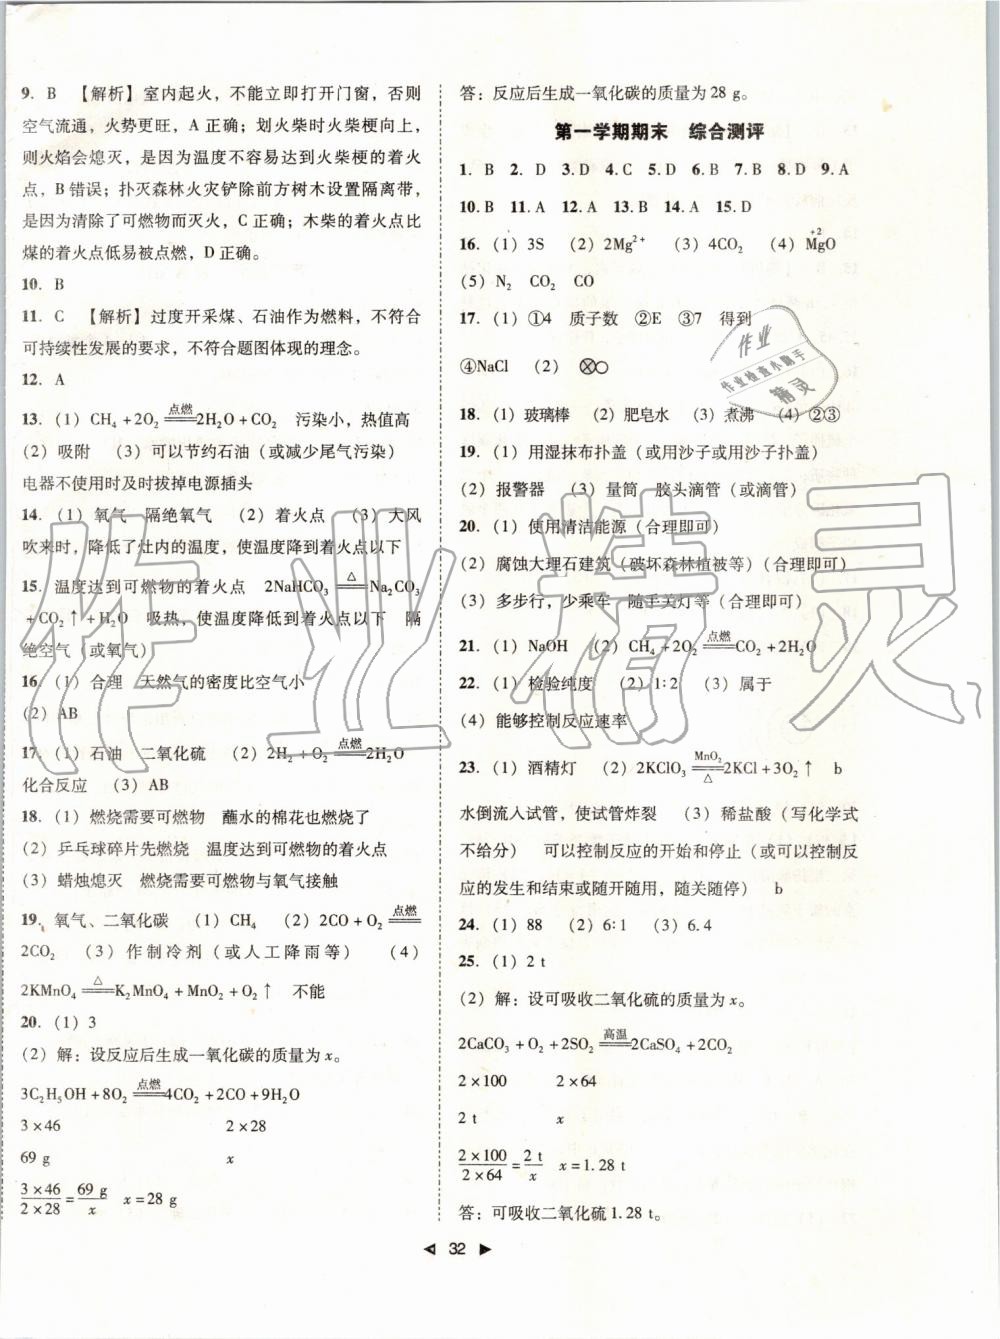 9. B 【解析】室内起火，不能立即打开门窗，否则
空气流通，火势更旺，A 正确；划火柴时火柴梗向上，
则火焰会熄灭，是因为温度不容易达到火柴梗的着火
点，B 错误；扑灭森林火灾铲除前方树木设置隔离带，
是因为清除了可燃物而灭火，C 正确；木柴的着火点比
煤的着火点低易被点燃，D 正确。
10. B
11. C 【解析】过度开采煤、石油作为燃料，不符合
可持续性发展的要求，不符合题图体现的理念。
12. A
13. (1) CH₄+2O₂ \xlongequal{点燃} 2H₂O+CO₂ 污染小，热值高
(2) 吸附 (3) 可以节约石油（或减少尾气污染）
电器不使用时及时拔掉电源插头
14. (1) 氧气 隔绝氧气 (2) 着火点 (3) 大风
吹来时，降低了灶内的温度，使温度降到着火点以下
15. 温度达到可燃物的着火点 2NaHCO₃ \xlongequal{△} Na₂CO₃
+CO₂↑+H₂O 吸热，使温度降低到着火点以下 隔
绝空气（或氧气）
16. (1) 合理 天然气的密度比空气小
(2) AB
17. (1) 石油 二氧化硫 (2) 2H₂+O₂ \xlongequal{点燃} 2H₂O
化合反应 (3) AB
18. (1) 燃烧需要可燃物 蘸水的棉花也燃烧了
(2) 乒乓球碎片先燃烧 温度达到可燃物的着火点
(3) 蜡烛熄灭 燃烧需要可燃物与氧气接触
19. 氧气、二氧化碳 (1) CH₄ (2) 2CO+O₂ \xlongequal{点燃}
2CO₂ (3) 作制冷剂（或人工降雨等） (4)
2KMnO₄ \xlongequal{△} K₂MnO₄+MnO₂+O₂↑ 不能
20. (1) 3
(2) 解：设反应后生成一氧化碳的质量为 x。
3C₂H₅OH+8O₂ \xlongequal{点燃} 4CO₂+2CO+9H₂O
3×46 2×28
69 g x
\frac{3×46}{2×28}=\frac{69 g}{x} x=28 g
答：反应后生成一氧化碳的质量为 28 g。
第一学期期末 综合测评
1. B 2. D 3. D 4. C 5. D 6. B 7. B 8. D 9. A
10. B 11. A 12. A 13. B 14. A 15. D
16. (1) 3S (2) 2Mg²⁺ (3) 4CO₂ (4) \overset{+2}{Mg}O
(5) N₂ CO₂ CO
17. (1) ①4 质子数 ②E ③7 得到
④NaCl (2)
18. (1) 玻璃棒 (2) 肥皂水 (3) 煮沸 (4) ②③
19. (1) 用湿抹布扑盖（或用沙子或用沙子扑盖）
(2) 报警器 (3) 量筒 胶头滴管（或滴管）
20. (1) 使用清洁能源（合理即可）
(2) 腐蚀大理石建筑（破坏森林植被等）（合理即可）
(3) 多步行，少乘车 随手关灯等（合理即可）
21. (1) NaOH (2) CH₄+2O₂ \xlongequal{点燃} CO₂+2H₂O
22. (1) 检验纯度 (2) 1∶2 (3) 属于
(4) 能够控制反应速率
23. (1) 酒精灯 (2) 2KClO₃ \xlongequal[△]{MnO₂} 2KCl+3O₂↑ b
水倒流入试管，使试管炸裂 (3) 稀盐酸（写化学式
不给分） 可以控制反应的开始和停止（或可以控制反
应的发生和结束或随开随用，随关随停） b
24. (1) 88 (2) 6∶1 (3) 6.4
25. (1) 2 t
(2) 解：设可吸收二氧化硫的质量为 x。
2CaCO₃+O₂+2SO₂ \xlongequal{高温} 2CaSO₄+2CO₂
2×100 2×64
2 t x
\frac{2×100}{2×64}=\frac{2 t}{x} x=1.28 t
答：可吸收二氧化硫 1.28 t。
32
作业精灵
作业
作业检查小助手
精灵